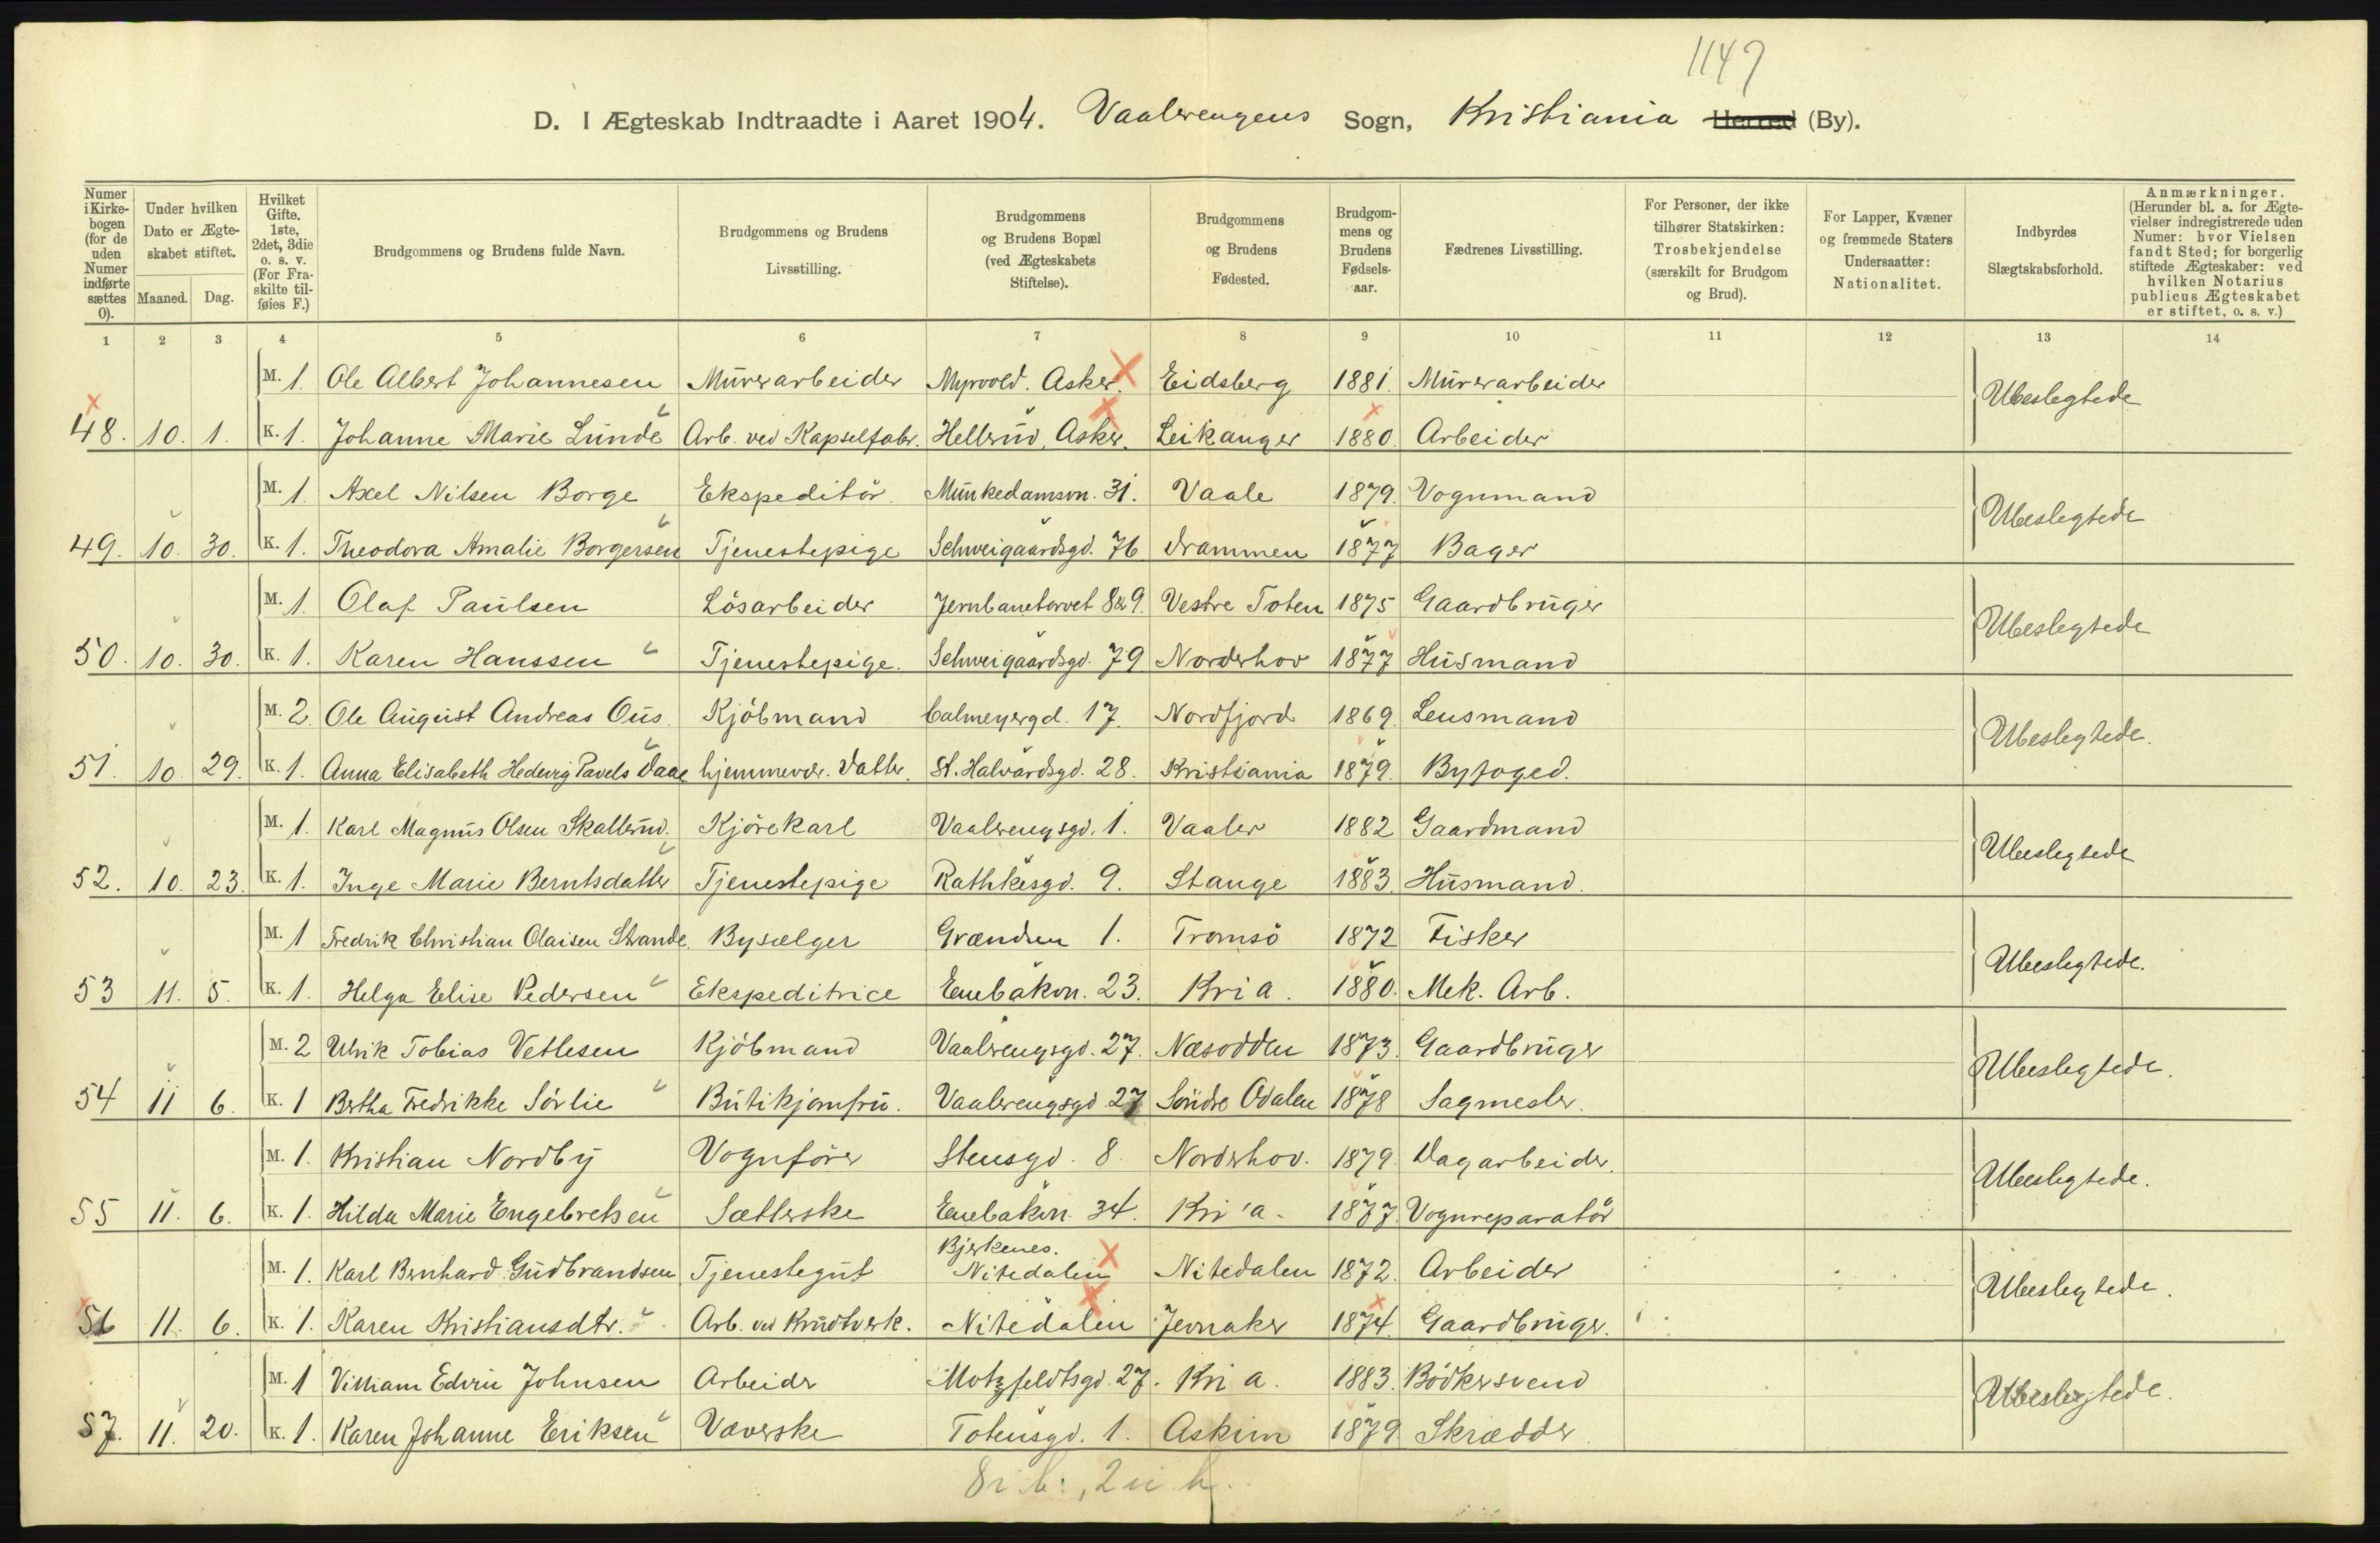 1147
D. I Ægteskab Indtraadte i Aaret 1904. Vaalerengens Sogn, Kristiania Herred (By).
Numer i Kirkebogen (for de uden Numer indførte sættes 0). | Under hvilken Dato er Ægteskabet stiftet. Maaned. Dag. | Hvilket Gifte. 1ste, 2det, 3die o. s. v. (For Fraskilte tilføies F.) | Brudgommens og Brudens fulde Navn. | Brudgommens og Brudens Livsstilling. | Brudgommens og Brudens Bopæl (ved Ægteskabets Stiftelse). | Brudgommens og Brudens Fødested. | Brudgommens og Brudens Fødselsaar. | Fædrenes Livsstilling. | For Personer, der ikke tilhører Statskirken: Trosbekjendelse (særskilt for Brudgom og Brud). | For Lapper, Kvæner og fremmede Staters Undersaatter: Nationalitet. | Indbyrdes Slægtskabsforhold. | Anmærkninger. (Herunder bl. a. for Ægtevielser indregistrerede uden Numer: hvor Vielsen fandt Sted; for borgerlig stiftede Ægteskaber: ved hvilken Notarius publicus Ægteskabet er stiftet, o. s. v.)
1 2 3 4 5 6 7 8 9 10 11 12 13 14
M. 1. Ole Albert Johannesen Murerarbeider Myrvold. Asker. Eidsberg 1881. Murerarbeider Ubeslegtede
48. 10. 1. K. 1. Johanne Marie Lunde Arb. ved Kapselfabr. Hellerud, Asker. Leikanger 1880. Arbeider
M. 1. Axel Nilsen Borge Ekspeditör. Munkedamsvn. 31. Vaale 1879. Vognmand Ubeslegtede
49. 10. 30. K. 1. Theodora Amalie Borgersen Tjenestepige Schweigaardsgd. 76 Drammen 1877 Bager
M. 1. Olaf Paulsen Lösarbeider Jernbanetorvet 8&9. Vestre Toten 1875 Gaardbruger Ubeslegtede
50. 10. 30. K. 1. Karen Hanssen Tjenestepige. Schweigaardsgd. 79 Norderhov 1877 Husmand
M. 2. Ole August Andreas Ous. Kjöbmand Calmeyergd. 17. Nordfjord 1869. Lensmand Ubeslegtede.
51. 10. 29. K. 1. Anna Elisabeth Hedevig Pavels Daae hjemmevær. Datter. St. Halvardsgd. 28. Kristiania 1879. Byfoged.
M. 1. Karl Magnus Olsen Skallerud. Kjörekarl Vaalerengsgd. 1. Vaaler 1882 Gaardmand Ubeslegtede
52. 10. 23. K. 1. Inge Marie Berntsdatter Tjenestepige Rathkesgd. 9. Stange 1883. Husmand.
M. 1 Fredrik Christian Olaisen Strande. Bysælger Grændsen 1. Tromsö 1872 Fisker Ubeslegtede.
53 11. 5. K. 1. Helga Elise Pedersen Ekspeditrice Enebakvn. 23. Kria. 1880. Mek. Arb.
M. 2 Ulrik Tobias Vetlesen Kjöbmand Vaalerengsgd. 27. Næsodden 1873. Gaardbruger Ubeslegtede.
54 11 6. K. 1 Bertha Fredrikke Sörlie Butikjomfru. Vaalerengsgd. 27 Söndre Odalen 1878 Sagmester.
M. 1. Kristian Nordby Vognförer Stensgd. 8. Norderhov. 1879. Dagarbeider. Ubeslegtede.
55 11. 6. K. 1. Hilda Marie Engebretsen Sætterske Enebakvn. 34. Kri'a. 1877. Vognreparatör
Bjerkenes.
M. 1. Karl Bernhard Gudbrandsen Tjenestegut Nitedalen Nitedalen 1872. Arbeider Ubeslegtede.
56 11. 6. K. 1. Karen Kristiansdtr. Arb. ved Krudtverk. Nitedalen Jevnaker 1874. Gaardbruger.
M. 1 Villiam Edvin Johnsen Arbeider Motzfeldtsgd. 27. Kria. 1883. Bödkersvend Ubeslegtede.
57. 11. 20. K. 1. Karen Johanne Eriksen Væverske Totensgd. 1. Askim 1879 Skrædder.